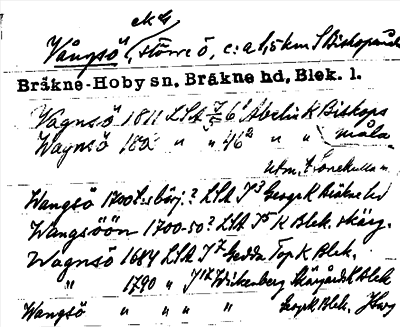 ek 4
Vångsö, större ö, c:a 1,5 km S Biskops
Bräkne-Hoby sn, Bräkne hd, Blek. l.
Vagnsö 1811 LSA 7/5 6¹ Abelin K Biskops
Wagnsö 180 " " 46² " " " måla
Utm.
Wangsö 1700-t:s börj.? LSA J³ Geogr K Bräkne hd
Wangsöön 1700-50? LSA J⁵ K Blek. skärg.
Wagnsö 1684 LSA J⁷ Gedda Top K Blek.
" 1790 " J¹² Wirkenberg Skärgårds K Blek
Wangsö " " " " Geogr K Blek.